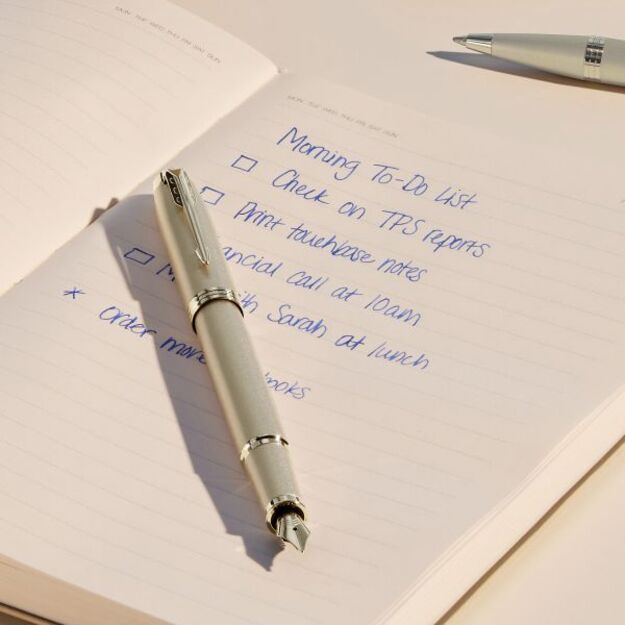 MON TUE WED THU FRI SAT SUN
MON TUE WED THU FRI SAT SUN
Morning To-Do List
Check on TPS reports
Print touchbase notes
call at 10am
Sarah at lunch
* order more